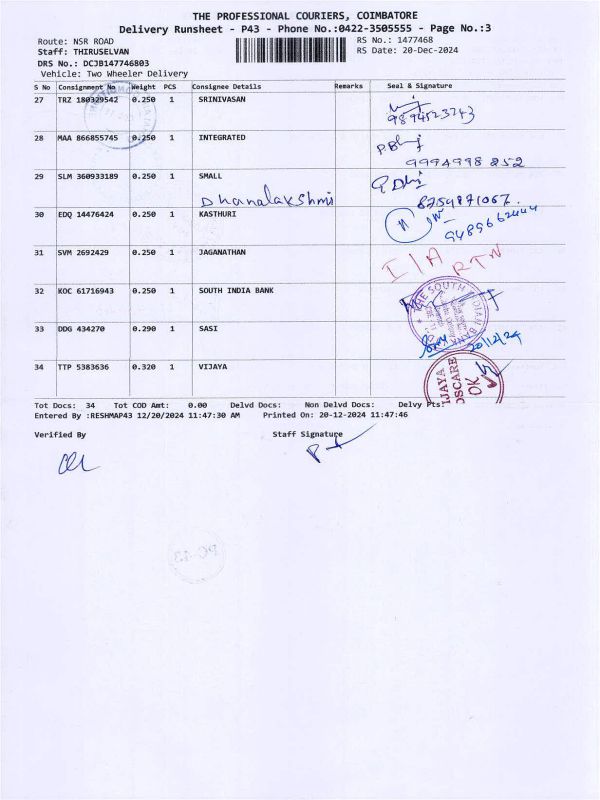 THE PROFESSIONAL COURIERS, COIMBATORE
Delivery Runsheet - P43 - Phone No.:0422-3505555 - Page No.:3
Route: NSR ROAD RS No.: 1477468
Staff: THIRUSELVAN RS Date: 20-Dec-2024
DRS No.: DCJB147746803
Vehicle: Two Wheeler Delivery
S No Consignment No Weight PCS Consignee Details Remarks Seal & Signature
27 TRZ 180329542 0.250 1 SRINIVASAN
9894523243
28 MAA 866855745 0.250 1 INTEGRATED
9994998852
29 SLM 360933189 0.250 1 SMALL
Dhanalakshmi 8754871067.
30 EDQ 14476424 0.250 1 KASTHURI
9489662444
31 SVM 2692429 0.250 1 JAGANATHAN
I/A RTN
32 KOC 61716943 0.250 1 SOUTH INDIA BANK
THE SOUTH INDIAN BANK
33 DDG 434270 0.290 1 SASI
20/12/24
34 TTP 5383636 0.320 1 VIJAYA
OK
Tot Docs: 34 Tot COD Amt: 0.00 Delvd Docs: Non Delvd Docs: Delvy Pts:
Entered By :RESHMAP43 12/20/2024 11:47:30 AM Printed On: 20-12-2024 11:47:46
Verified By Staff Signature